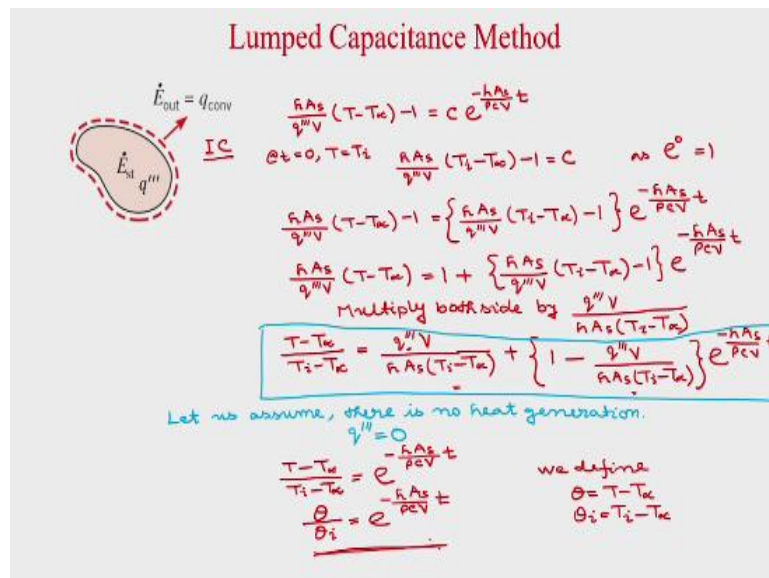 Lumped Capacitance Method
Ė_out = q_conv
Ė_st q'''
IC
hAs/q'''V (T-T∞) -1 = C e^(-hAs/ρcV t)
@t=0, T=Ti hAs/q'''V (Ti-T∞) -1 = C as e^0 = 1
hAs/q'''V (T-T∞) -1 = {hAs/q'''V (Ti-T∞) -1} e^(-hAs/ρcV t)
hAs/q'''V (T-T∞) = 1 + {hAs/q'''V (Ti-T∞) -1} e^(-hAs/ρcV t)
Multiply both side by q'''V/hAs(Ti-T∞)
T-T∞/Ti-T∞ = q'''V/hAs(Ti-T∞) + {1 - q'''V/hAs(Ti-T∞)} e^(-hAs/ρcV t)
Let us assume, there is no heat generation.
q'''=0
T-T∞/Ti-T∞ = e^(-hAs/ρcV t)
θ/θi = e^(-hAs/ρcV t)
we define
θ = T-T∞
θi = Ti-T∞